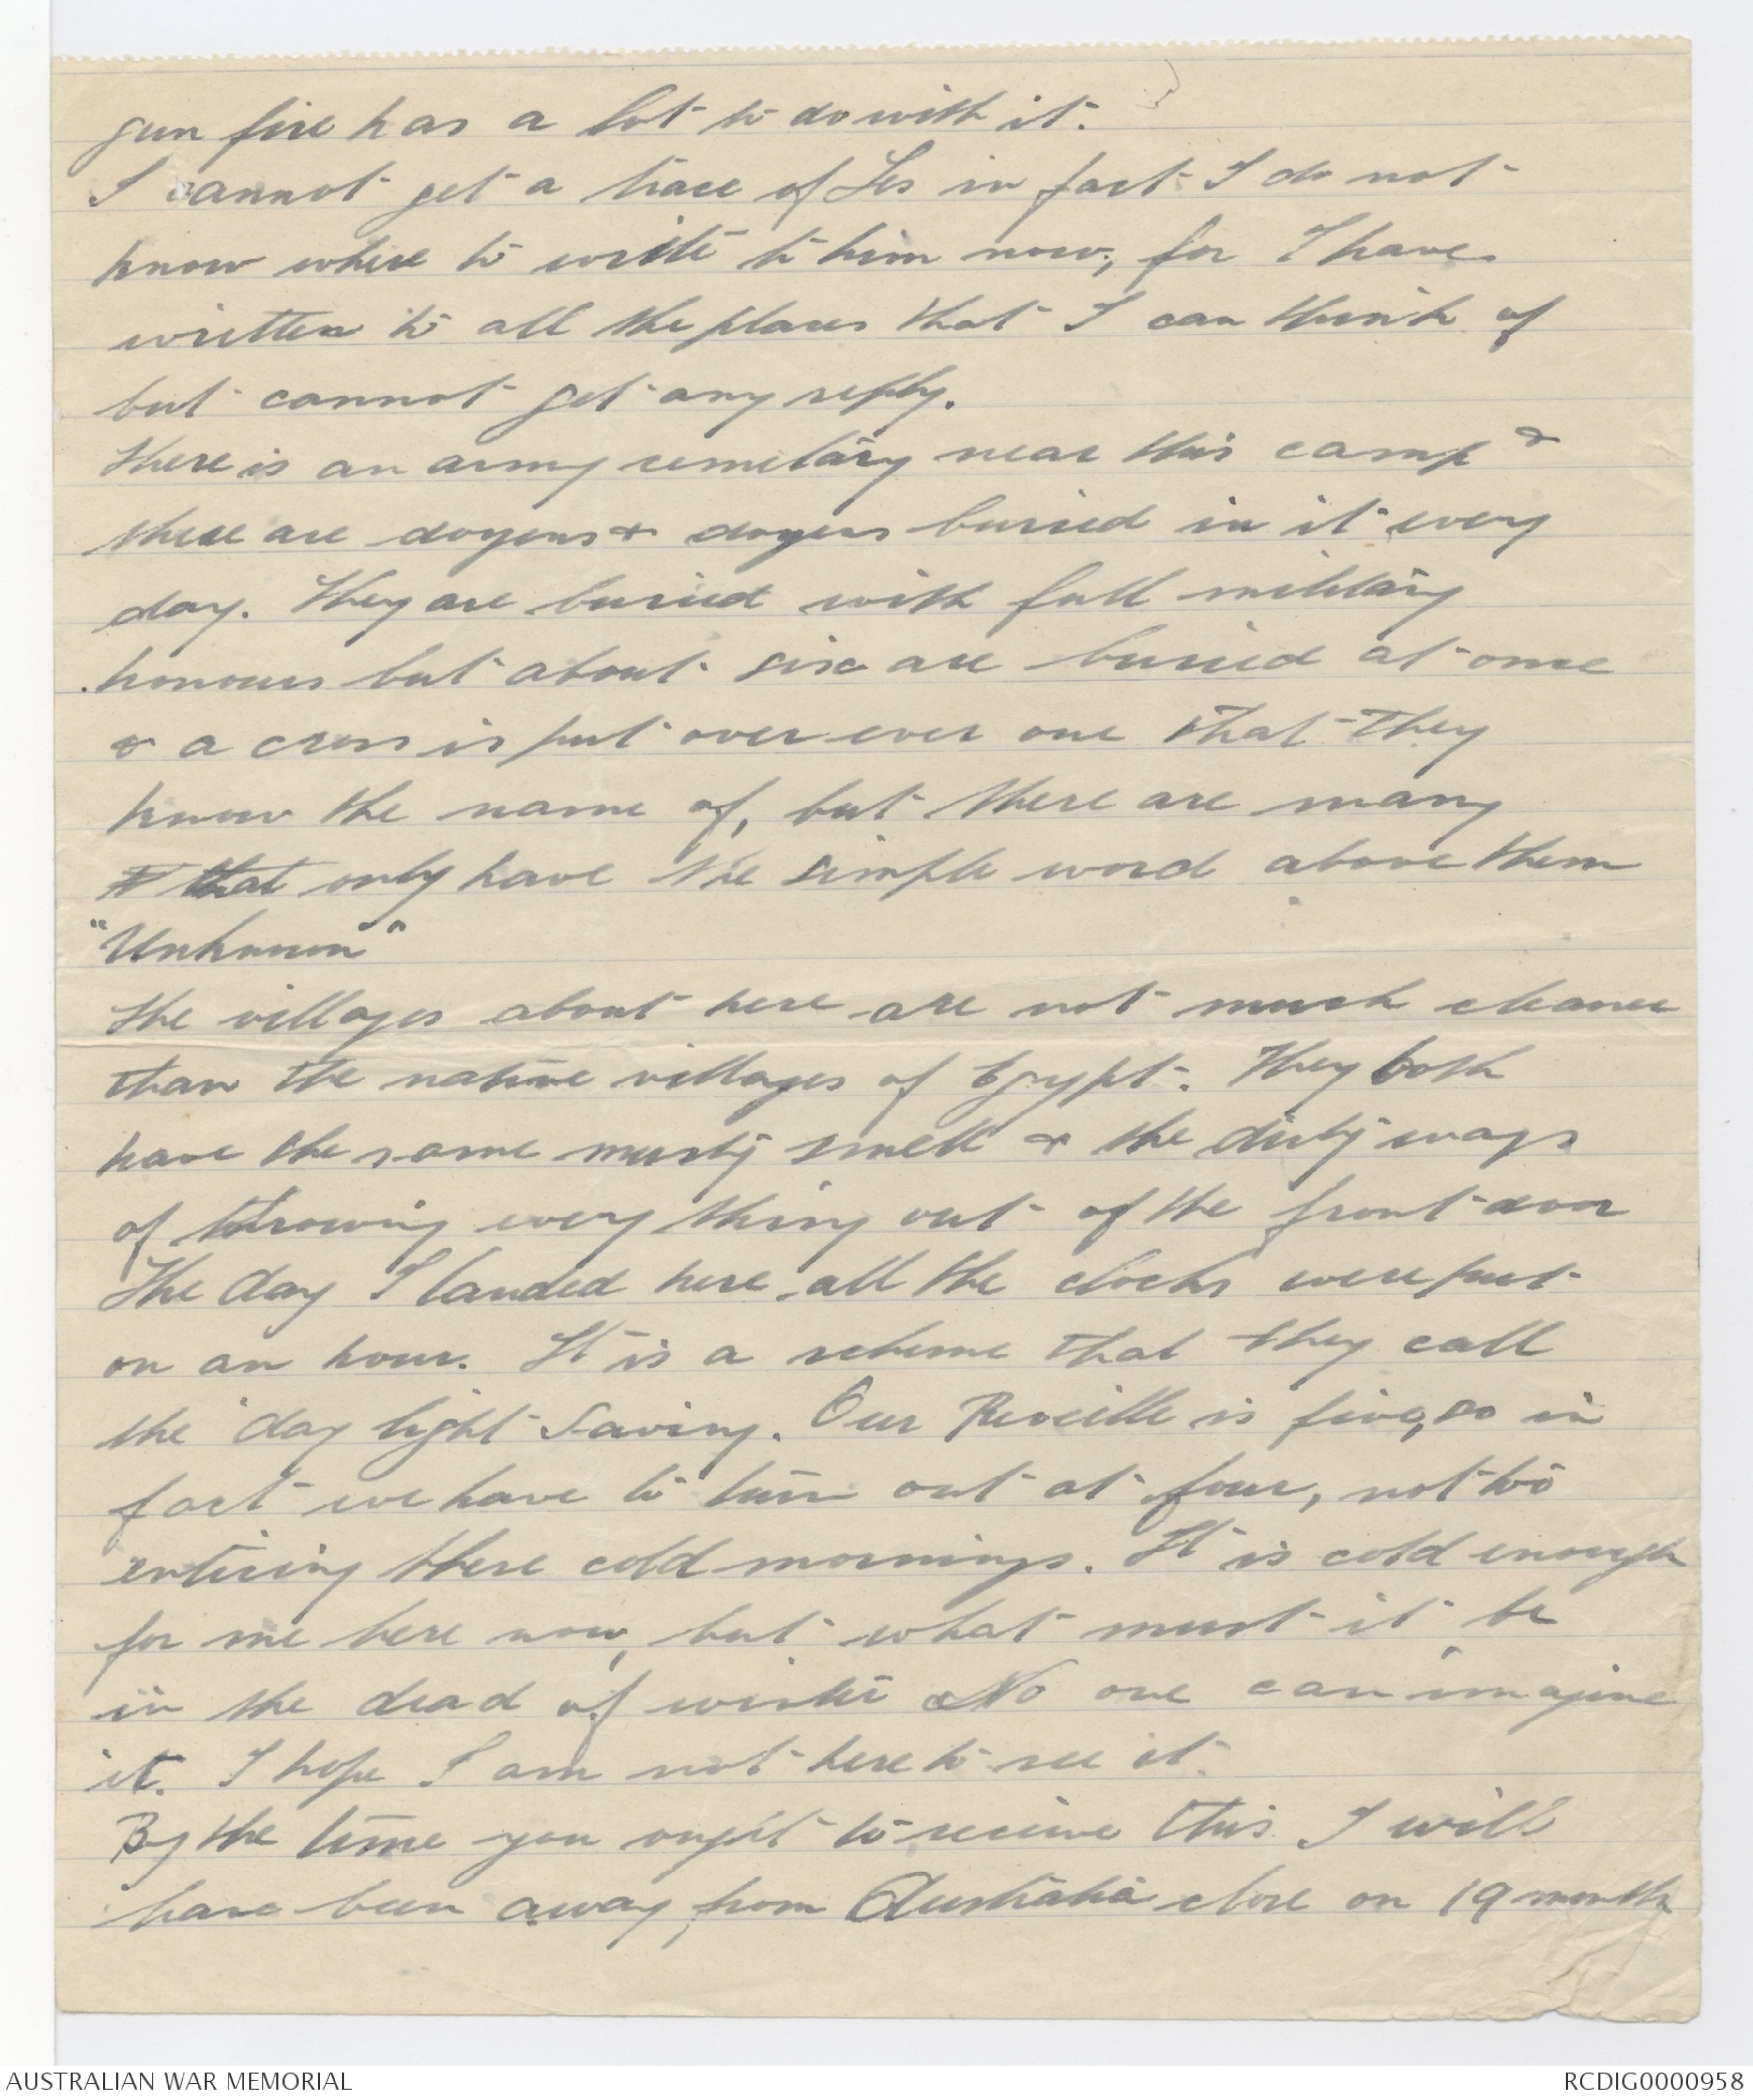 gun fire has a lot to do with it.
I cannot get a trace of Les in fact I do not
know where to write to him now, for I have
written to all the places that I can think of
but cannot get any reply.
There is an army cemetary near this camp &
there are dozens & dozens buried in it every
day. They are buried with full military
honours but about six are buried at once
& a cross is put over ever one that they
know the name of, but there are many
that only have the simple word above them
"Unknown"
The villages about here are not much cleaner
than the native villages of Egypt. They both
have the same musty smell & the dirty ways
of throwing every thing out of the front door
The day I landed here all the clocks were put
on an hour. It is a scheme that they call
the day light Saving. Our Reveille is five, so in
fact we have to turn out at four, not too
enticing these cold mornings. It is cold enough
for me here now, but what must it be
in the dead of winter No one can imagine
it. I hope I am not here to see it.
By the time you ought to receive this I will
have been away from Australia close on 19 month
AUSTRALIAN WAR MEMORIAL
RCDIG0000958